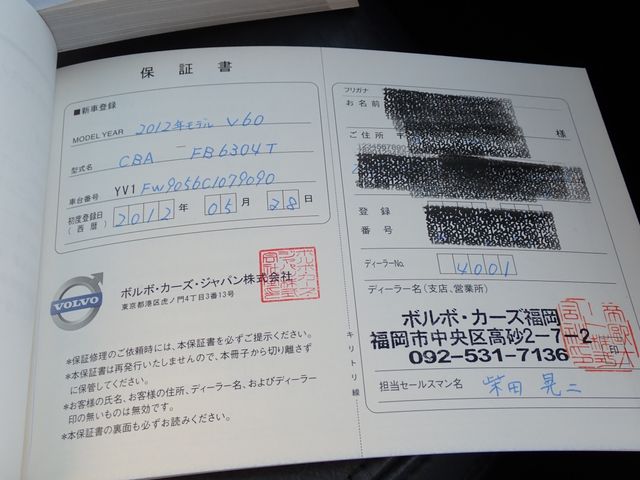 保証書
■新車登録
MODEL YEAR 2012年モデル V60
型式名 CBA - FB6304T
車台番号 YV1FW9056C1079090
初度登録日(西暦) 2012年 05月 28日
VOLVO
ボルボ・カーズ・ジャパン株式会社
東京都港区虎ノ門4丁目3番13号
*保証修理のご依頼時には、本保証書を必ずご提示ください。
*本保証書は再発行いたしませんので、本冊子から切り離さずに保管してください。
*お客様の氏名、お客様の住所、ディーラー名、およびディーラー印の無いものは無効です。
*本保証書の裏面も必ずお読みください。
キリトリ線
フリガナ
お名前 様
ご住所 〒
登録番号
ディーラーNo. 4001
ディーラー名(支店、営業所)
ボルボ・カーズ福岡
福岡市中央区高砂2-7-2
092-531-7136
印
担当セールスマン名 柴田晃二